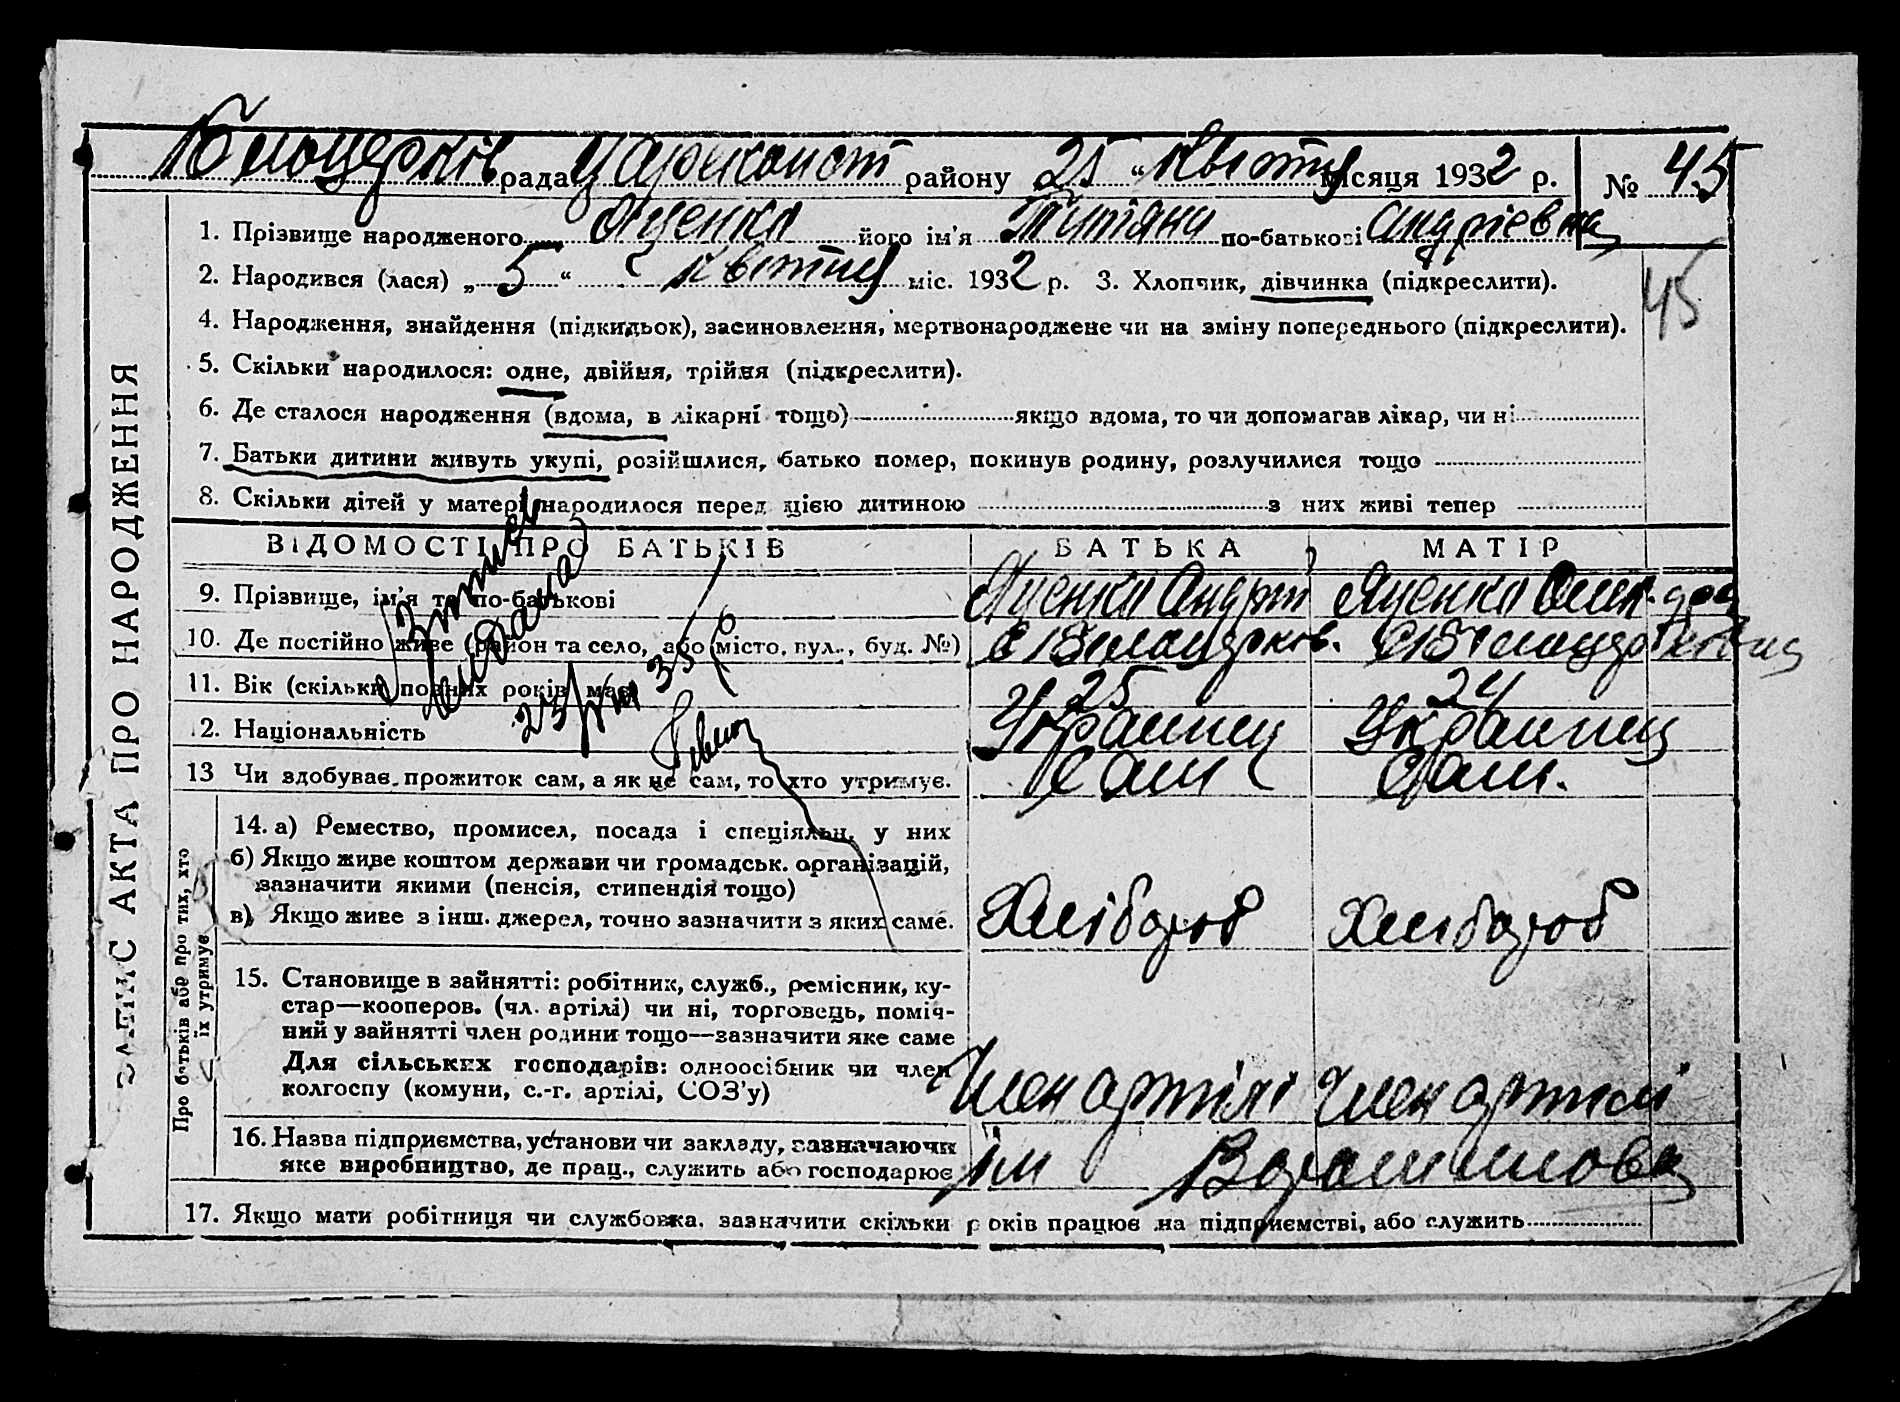 Білоцерків рада Цареконст району 25 " квітня місяця 1932 р. № 45
1. Прізвище народженого Яценко його ім'я Титяна по-батькові Андріевна
2. Народився (лася) „ 5 " квітня міс. 1932 р. 3. Хлопчик, дівчинка (підкреслити).
45
4. Народження, знайдення (підкидьок), засиновлення, мертвонароджене чи на зміну попереднього (підкреслити).
5. Скільки народилося: одне, двійня, трійня (підкреслити).
6. Де сталося народження (вдома, в лікарні тощо) якщо вдома, то чи допомагав лікар, чи ні
7. Батьки дитини живуть укупі, розійшлися, батько помер, покинув родину, розлучилися тощо
8. Скільки дітей у матері народилося перед цією дитиною з них живі тепер
ЗАПИС АКТА ПРО НАРОДЖЕННЯ
ВІДОМОСТІ ПРО БАТЬКІВ БАТЬКА МАТІР
9. Прізвище, ім'я та по-батькові Яценко Андрій Яценко
10. Де постійно живе (район та село, або місто, вул., буд. №) с Білоцерков. с Білоцерковка
11. Вік (скільки повних років має) 25 24
25/VIII 35
12. Національність Украинец Украинец
13 Чи здобуває прожиток сам, а як не сам, то хто утримує. Сам Сам.
Про батьків або про тих, хто їх утримує
14. а) Ремество, промисел, посада і спеціяльн. у них
б) Якщо живе коштом держави чи громадськ. організацій,
зазначити якими (пенсія, стипендія тощо)
в) Якщо живе з інш. джерел, точно зазначити з яких саме. Хлібороб Хлібороб
15. Становище в зайнятті: робітник, служб., ремісник, ку-
стар—кооперов. (чл. артілі) чи ні, торговець, поміч-
ний у зайнятті член родини тощо—зазначити яке саме
Для сільських господарів: одноосібник чи член
колгоспу (комуни, с.-г. артілі, СОЗ'у) Член артілі Член артілі
16. Назва підприємства, установи чи закладу, зазначаючи
яке виробництво, де прац., служить або господарює ім Ворошилова
17. Якщо мати робітниця чи службовка, зазначити скільки років працює на підприємстві, або служить